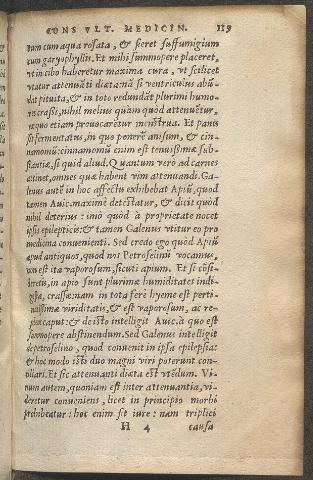 CONSVLT. MEDICIN. 119
num cum aqua rosata, & fieret suffumigium
cum garyophyllis. Et mihi summopere placeret,
vt in cibo haberetur maxima cura, vt scilicet
vtatur attenuāti diæta: nā si ventriculus abū-
dat pituita, & in toto redundāt plurimi humo-
res crassi, nihil melius quàm quòd attenuetur,
ex quo etiam prouocarētur mēstrua. Et panis
sit fermentatus, in quo ponerē anisum, & cin-
namomū: cinnamomū enim est tenuissimæ sub-
stantiæ, si quid aliud. Quantum verò ad carnes
attinet, omnes quæ habent vim attenuendi. Ga-
lenus autē in hoc affectu exhibebat Apiū, quod
tamen Auic. maximè detestatur, & dicit quòd
nihil deterius: imò quòd à proprietate nocet
ipsis epilepticis: & tamen Galenus vtitur eo pro
medicina conuenienti. Sed credo ego quòd Apiū
apud antiquos, quod nos Petroselinū vocamus,
non est ita vaporosum, sicuti apium. Et si cōsi-
deretis, in apio sunt plurimæ humiditates indi-
gestæ, crassæ: nam in tota ferè hyeme est perti-
nacissimæ viriditatis, & est vaporosum, ac re-
plet caput: & de isto intelligit Auic. à quo est
summopere abstinendum. Sed Galenus intelligit
de petroselino, quod conuenit in ipsa epilepsia:
& hoc modo isti duo magni viri poterunt con-
ciliari. Et sic attenuanti diæta est vtēdum. Vi-
num autem, quoniam est inter attenuantia, vi-
deretur conueniens, licet in principio morbi
prohibeatur: hoc enim fit iure: nam triplici
H 4 causa